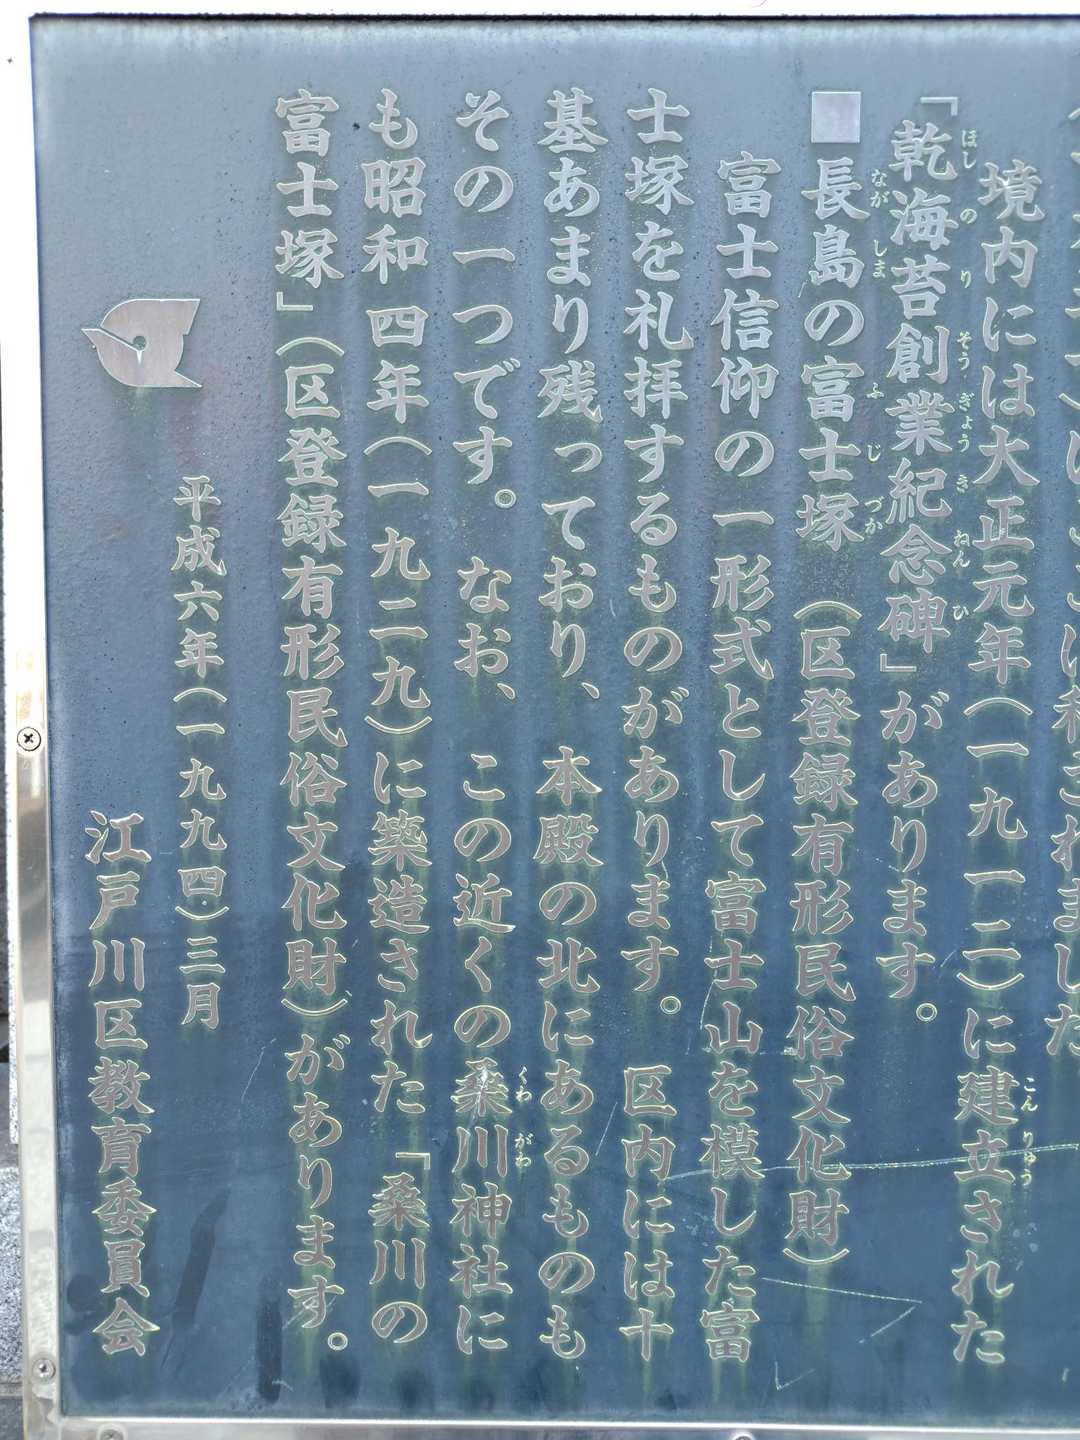 境内には大正元年(一九一二)に建立された
「乾海苔創業紀念碑」があります。
ほしのりそうぎょうきねんひ
こんりゅう
■長島の富士塚 (区登録有形民俗文化財)
ながしまふじづか
富士信仰の一形式として富士山を模した富
士塚を礼拝するものがあります。 区内には十
基あまり残っており、 本殿の北にあるものも
その一つです。 なお、 この近くの桑川神社に
くわがわ
も昭和四年(一九二九)に築造された「桑川の
富士塚」(区登録有形民俗文化財)があります。
平成六年(一九九四)三月
江戸川区教育委員会